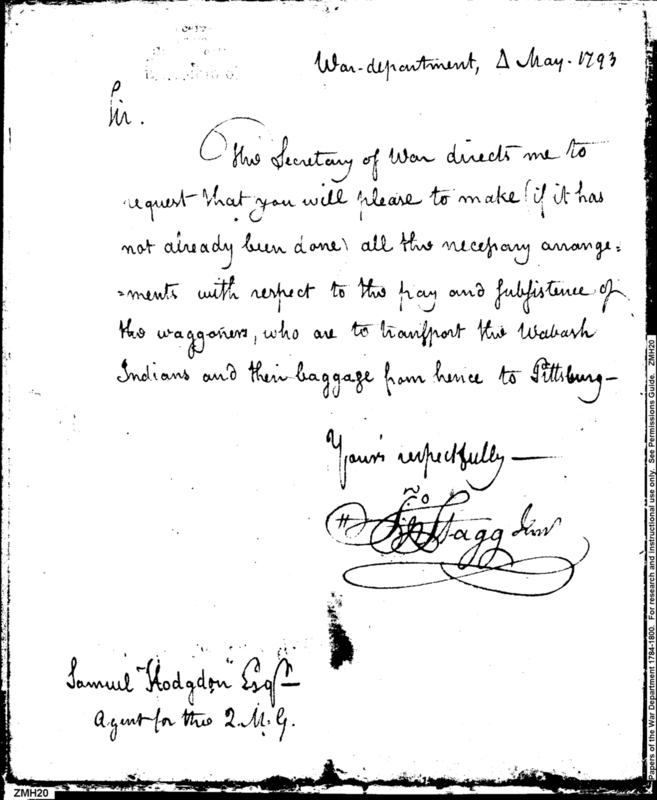 War-department, 4 May. 1793
Sir.
The Secretary of War directs me to
request that you will please to make (if it has
not already been done) all the necessary arrange=
=ments with respect to the pay and subsistence of
the waggoners, who are to transport the Wabash
Indians and their baggage from hence to Pittsburg—
Your's respectfully—
Jno Stagg Junr
Samuel Hodgdon Esqr—
Agent for the Q.M.G.
ZMH20
Papers of the War Department 1784-1800. For research and instructional use only. See Permissions Guide. ZMH20